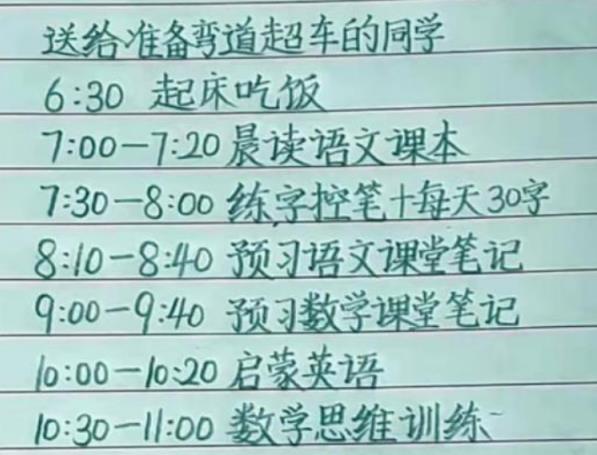 送给准备弯道超车的同学
6:30 起床吃饭
7:00-7:20 晨读语文课本
7:30-8:00 练字控笔+每天30字
8:10-8:40 预习语文课堂笔记
9:00-9:40 预习数学课堂笔记
10:00-10:20 启蒙英语
10:30-11:00 数学思维训练